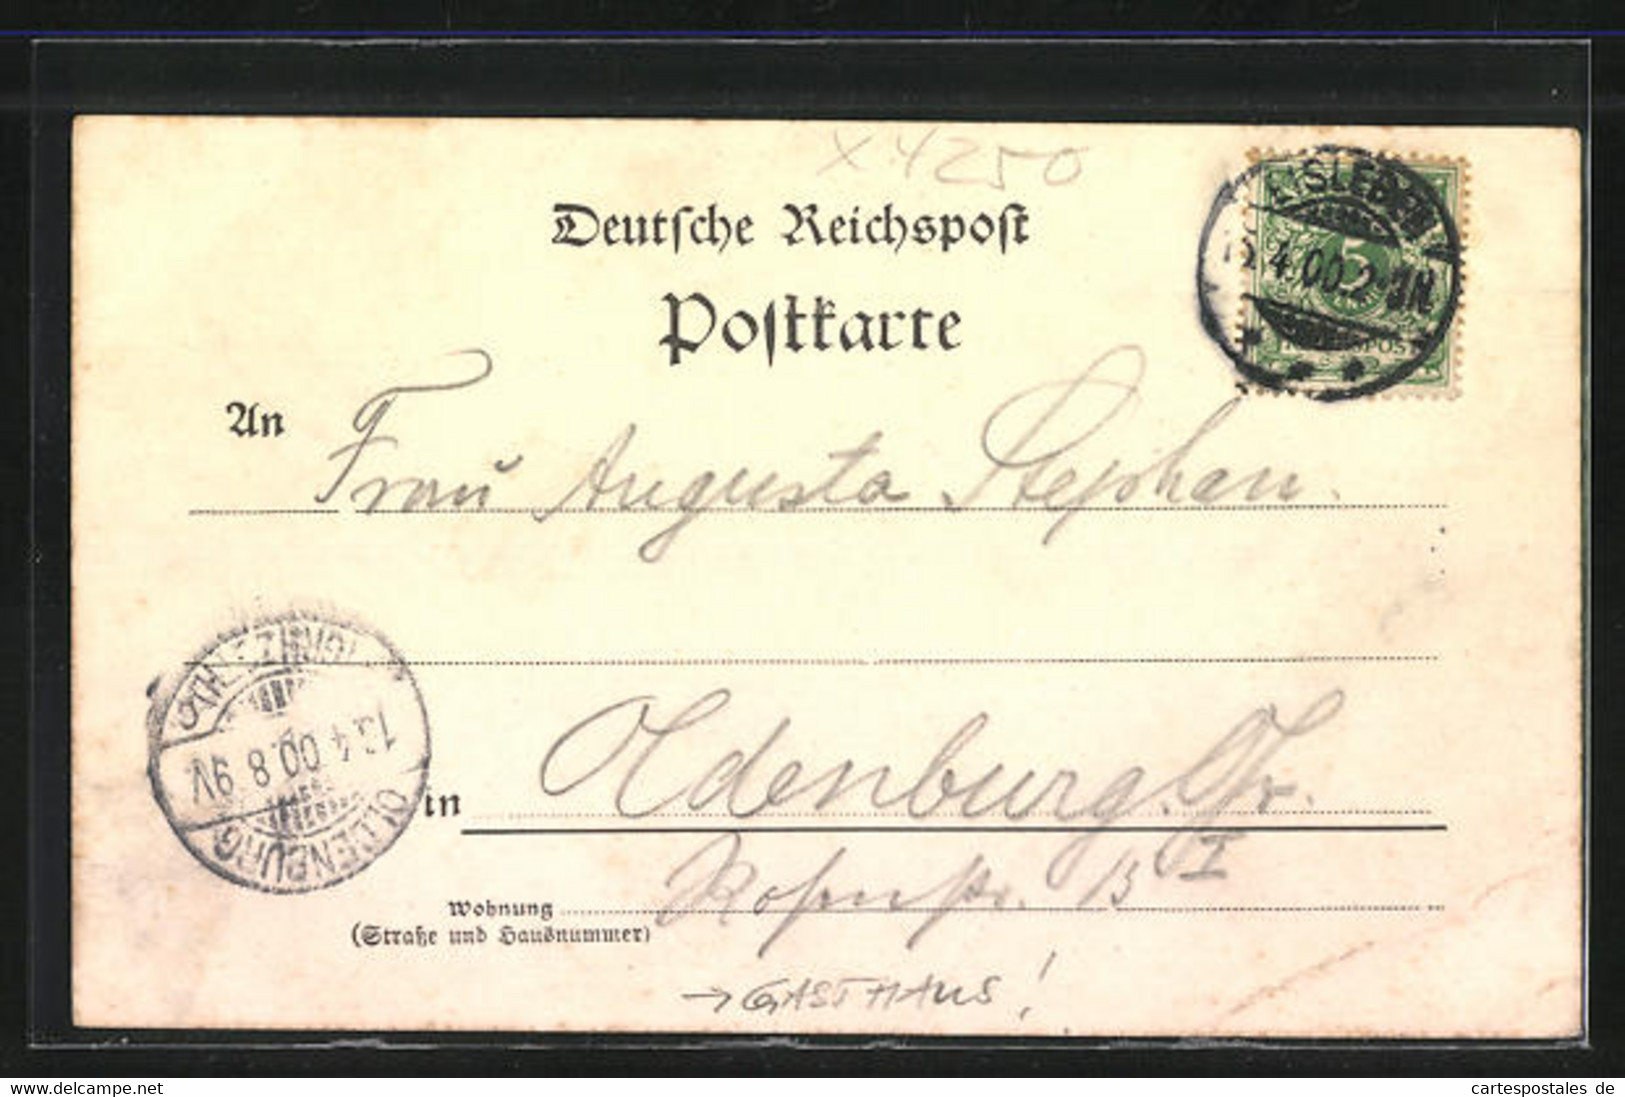 x 4250
Deutsche Reichspost
Postkarte
EISLEBEN
4.00.2-3N.
5
REICHSPOST
An Frau Augusta Stephan.
13.4.00.8-9V
OLDENBURG
in Oldenburg. Gr.
I
Wohnung Rosenstr. 13
(Straße und Hausnummer)
→ GASTHAUS!
www.delcampe.net
cartespostales de